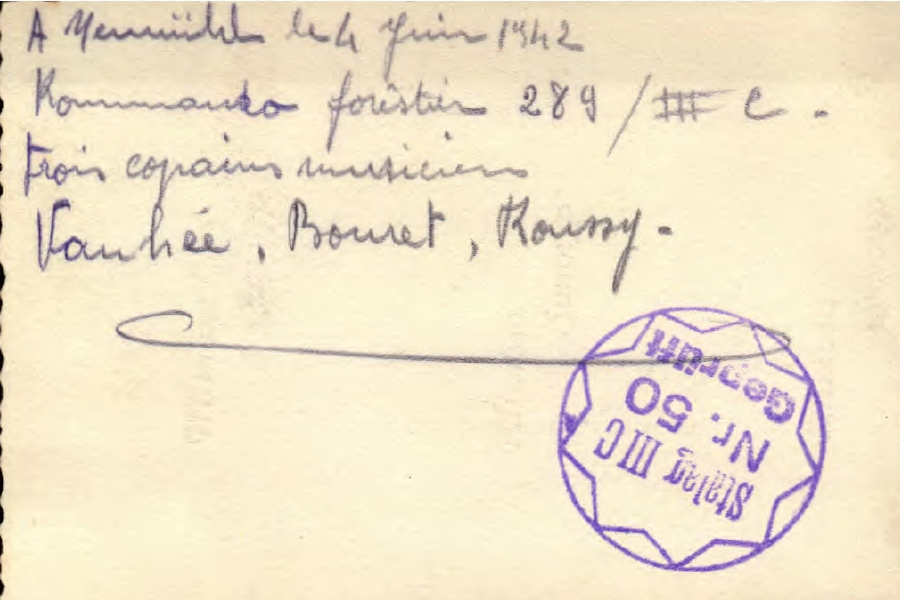 A Neumühl le 4 Juin 1942
Kommando forêstier 289 / III C -
trois copains musiciens
Vanhée, Bouret, Roussy -
Stalag III C
Nr. 50
Geprüft